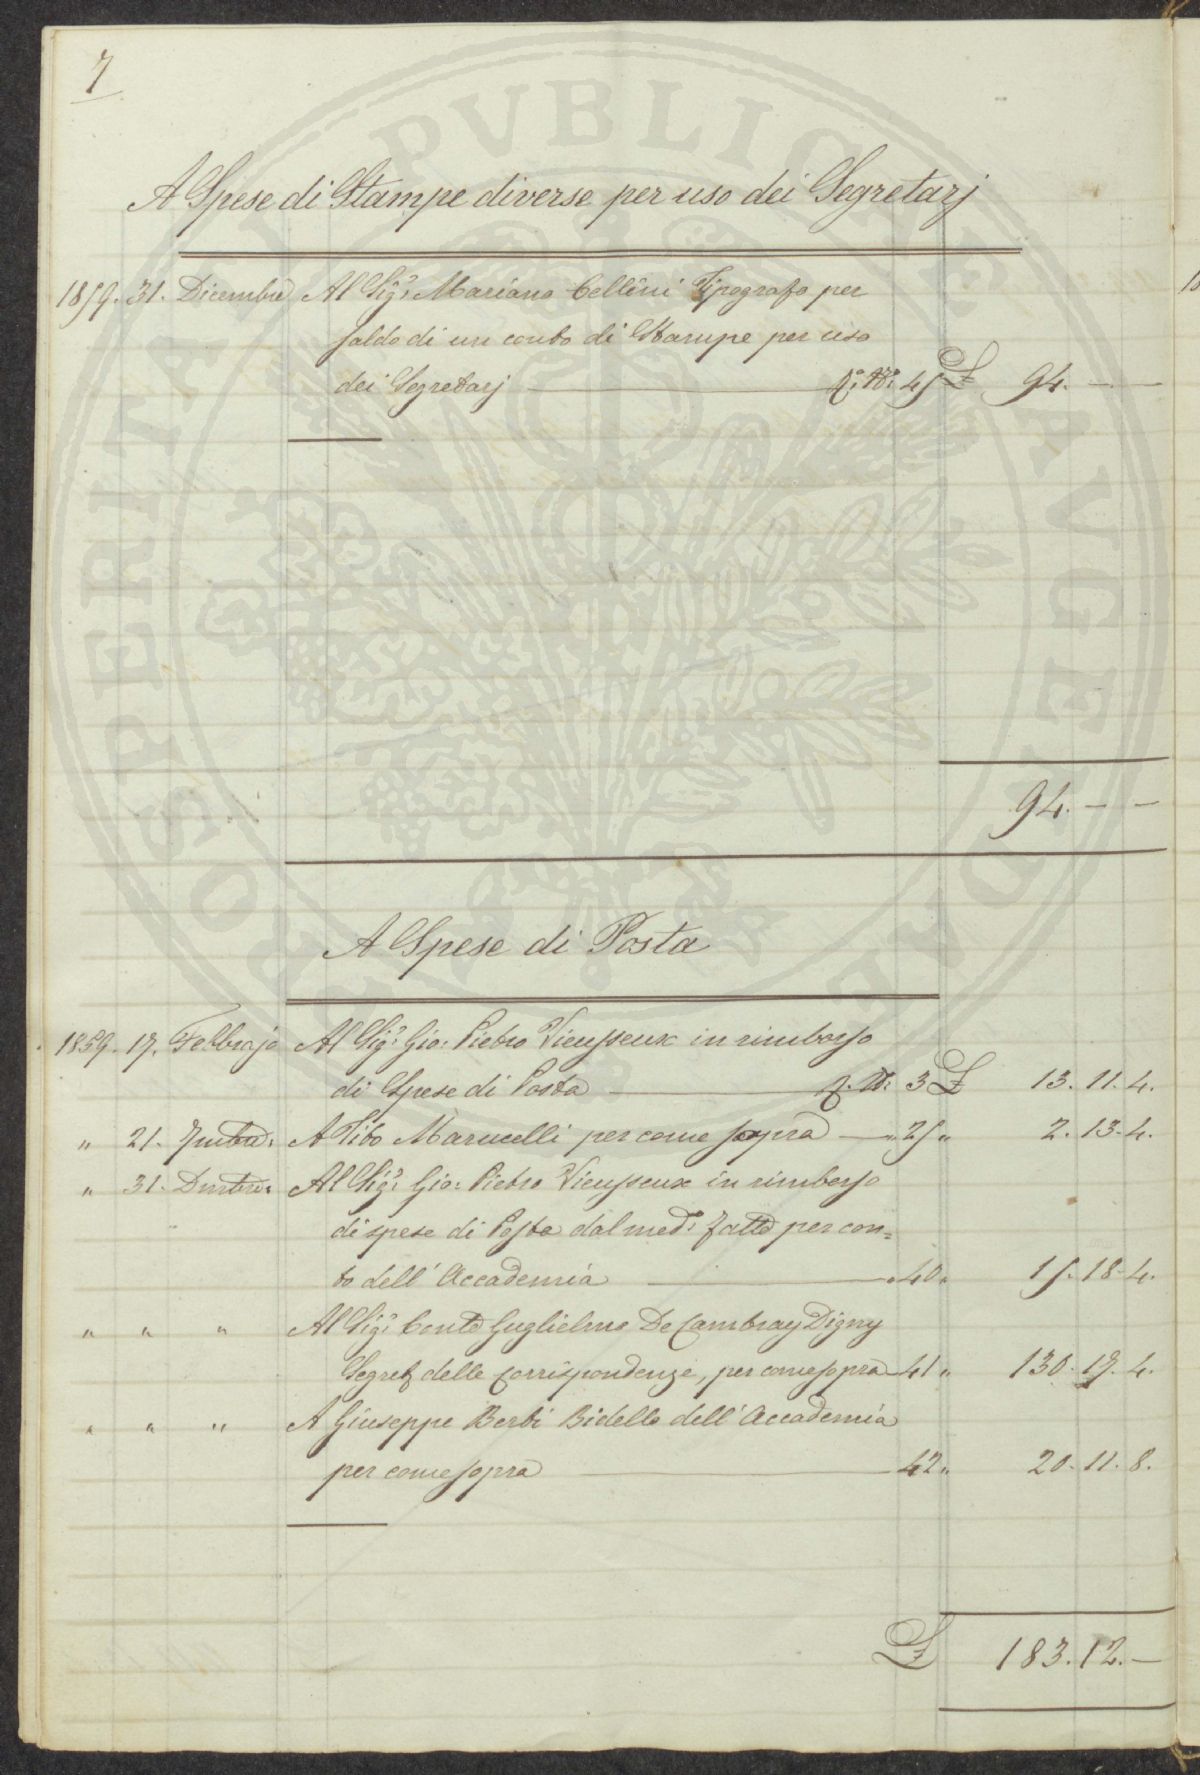 7
A Spese di Stampe diverse per uso dei Segretarj
1859. 31. Dicembre Al Sigr: Mariano Cellini Tipografo per
saldo di un conto di Stampe per uso
dei Segretarj — No: 45 £ 94. — —
94. — —
A Spese di Posta
1859. 17. Febbrajo Al Sigr: Gio: Pietro Vieusseux in rimborso
di Spese di Posta — 3 £ 13. 11. 4.
" 21. 7mbre: A Tito Marucelli per come sopra — " 25 " 2. 13. 4.
" 31. Dmbre: Al Sigr: Gio: Pietro Vieusseux in rimborso
di spese di Posta dal med: fatte per con=
to dell' Accademia — " 40 " 15. 18. 4.
" " " Al Sigr: Conte Guglielmo De Cambray Digny
Segret delle Corrispondenze, per come sopra 41 " 130. 17. 4.
" " " A Giuseppe Berti Bidello dell' Accademia
per come sopra — 42 " 20. 11. 8.
£ 183. 12. —
PROSPERITATI PVBLICAE AVGENDAE